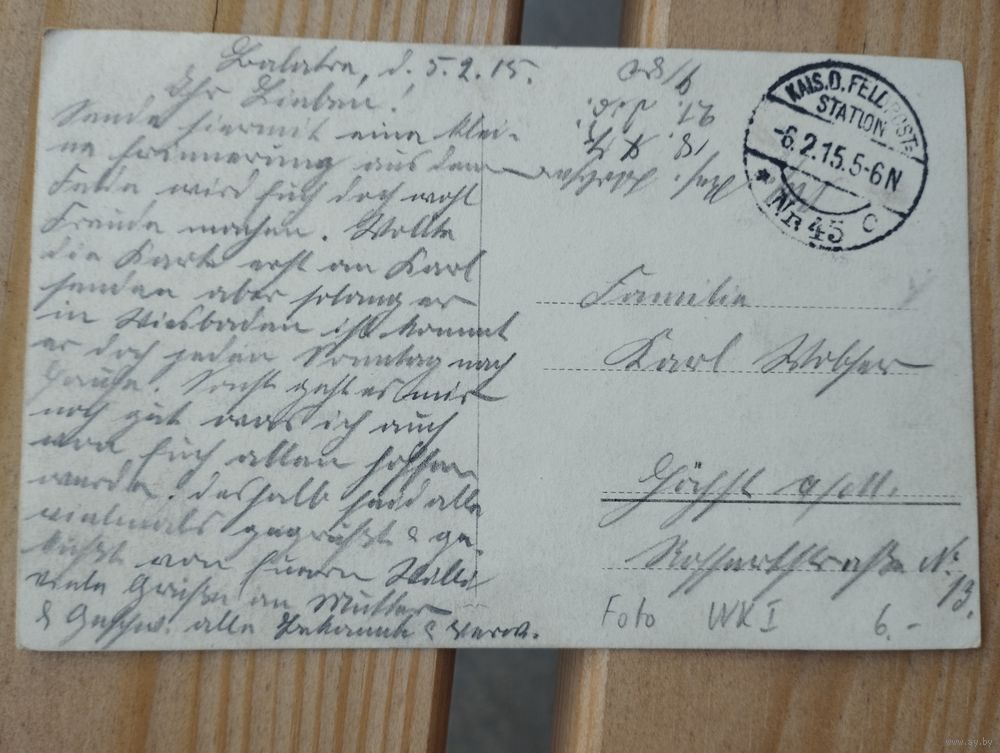 Balatre, d. 5.2.15.
Ihr Lieben!
Sende hiermit eine klei-
ne Erinnerung aus dem
Felde wird Euch doch wohl
Freude machen. Wollte
die Karte erst an Karl
senden aber solang er
in Wiesbaden ist kommt
er doch jeden Sonntag nach
Hause. Sonst geht es mir
noch gut was ich auch
von Euch allen hoffen
werde. Deshalb seid alle
vielmals gegrüßt & ge-
küßt von Eurem Willi
viele Grüße an Mutter
& Geschw. alle Bekannte & Verw.
KAIS. D. FELDPOST-
STATION
-6.2.15.5-6N
* NR 45 C
Familie
Karl
Höchst a/M.
N.
13.
Foto WK I 6.-
www.ay.by